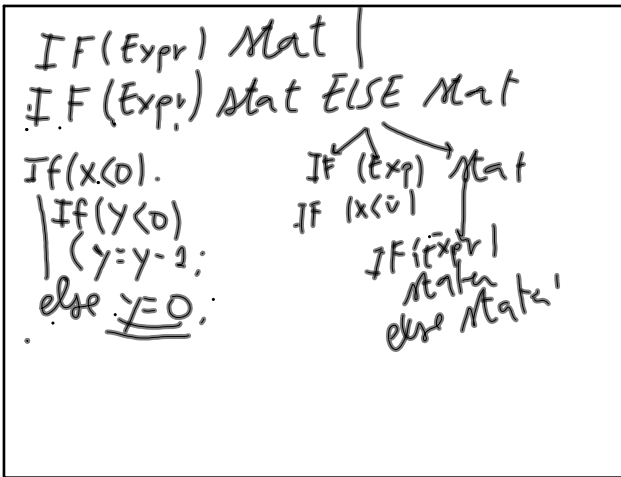 IF(Expr) stat |
IF(Expr) stat ELSE stat
If(x<0).
If(y<0)
(y=y-1;
else y=0;
IF (Exp) stat
IF (x<0)
IF(Expr)
staten
else staten